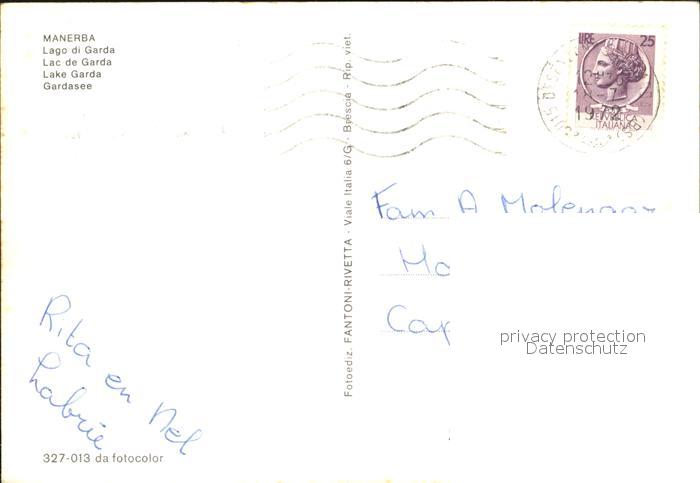 MANERBA
Lago di Garda
Lac de Garda
Lake Garda
Gardasee
LIRE 25
1972
ITALIANA
Fotoediz. FANTONI-RIVETTA - Viale Italia 6/G - Brescia - Rip. viet.
Fam A
Mo
Cap
privacy protection
Datenschutz
Rita en Nel
327-013 da fotocolor